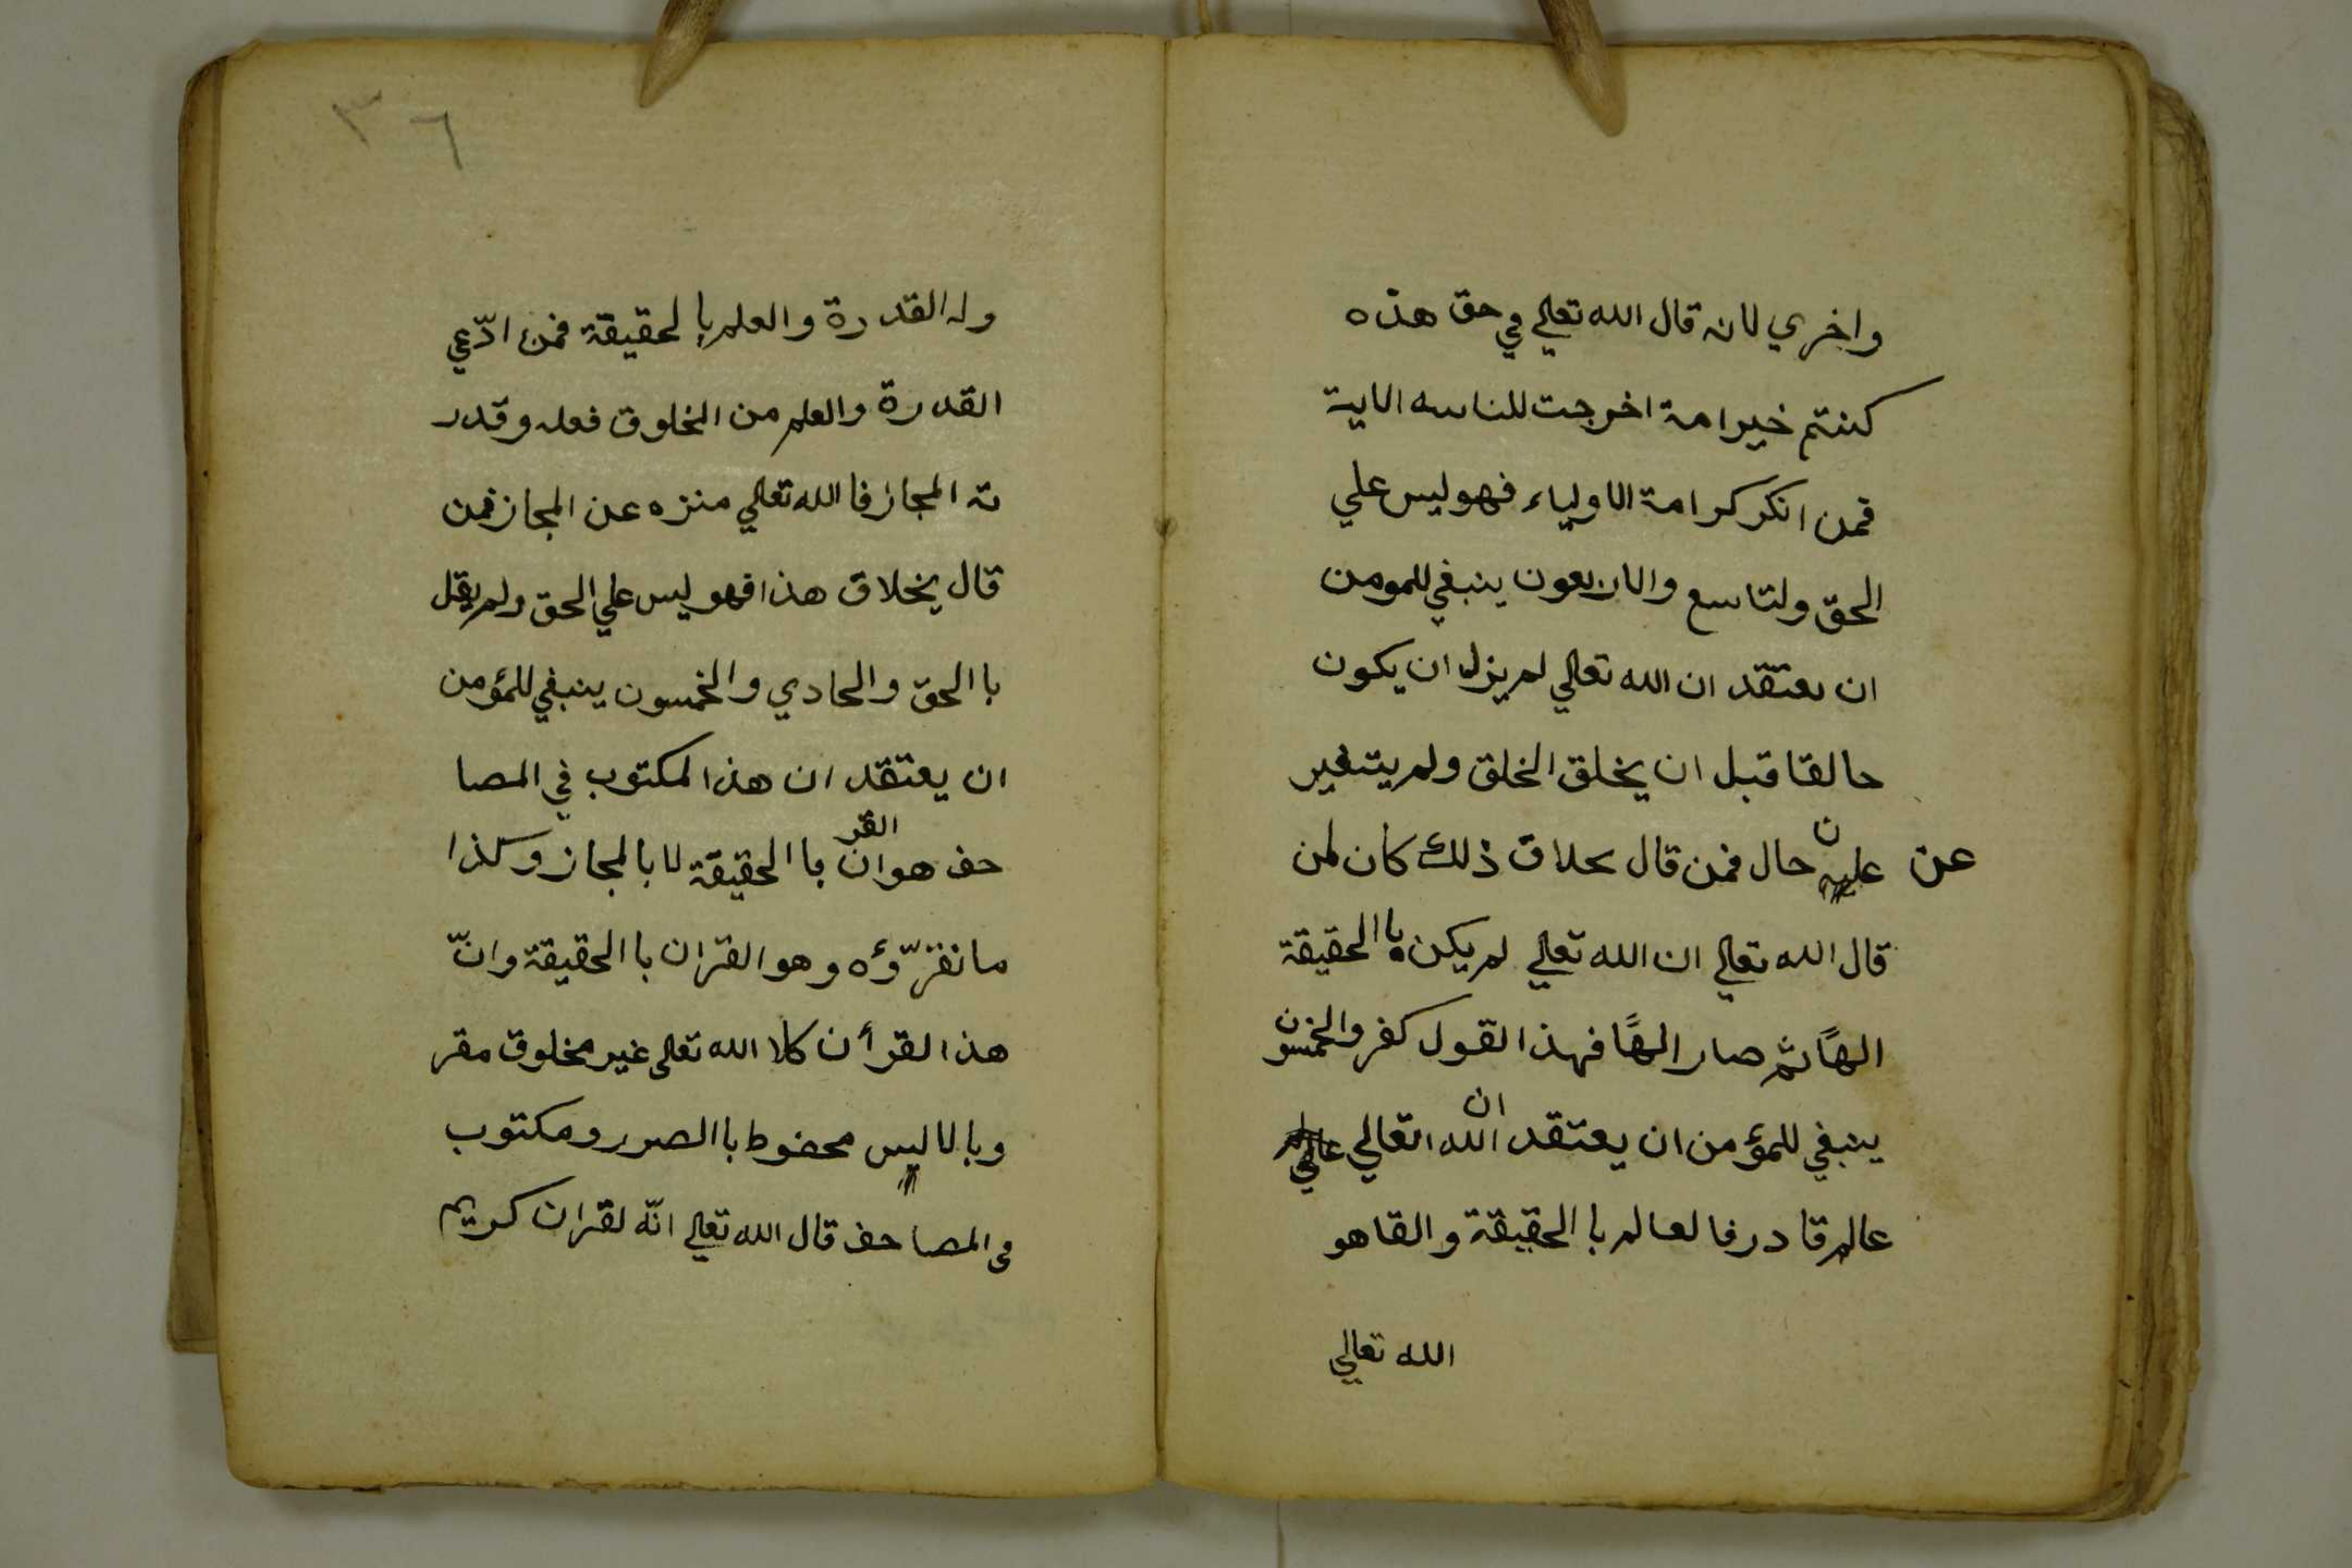 واخري لانه قال الله تعالي في حق هذه
كنتم خير امة اخرجت للناس الاية
فمن انكر كرامة الاولياء فهو ليس علي
الحق ولتاسع والاربعون ينبغي للمومن
ان يعتقد ان الله تعالي لم يزل ان يكون
حالقا قبل ان يخلق الخلق ولم يتغير
عن حال فمن قال بحلاق ذلك كان لمن
قال الله تعالي ان الله تعالي لم يكن با الحقيقة
الهًا ثم صار الهًا فهذا القول كفر والخمسون
ينبغي للمؤمن ان يعتقد ان الله اتعالي
عالم قادر فا لعالم با الحقيقة والقاهو
الله تعالي
٣٦
وله القدرة والعلم با لحقيقة فمن ادّعي
القدرة والعلم من المخلوق فعله وقدر
ته المجاز فا الله تعالي منزه عن المجاز فمن
قال يخلاق هذا فهو ليس علي الحق ولم يقل
با الحق والحادي والخمسون ينبغي للمؤمن
ان يعتقد ان هذا المكتوب في المصا
حف هو القران با الحقيقة لا بالمجاز وكذا
ما نقرّؤه وهو القران با الحقيقة وانّ
هذا القرأن كلا الله تعلى غير مخلوق مقر
وبالا ليس محفوط با الصدر ومكتوب
في المصاحف قال الله تعالي انّه لقران كريم